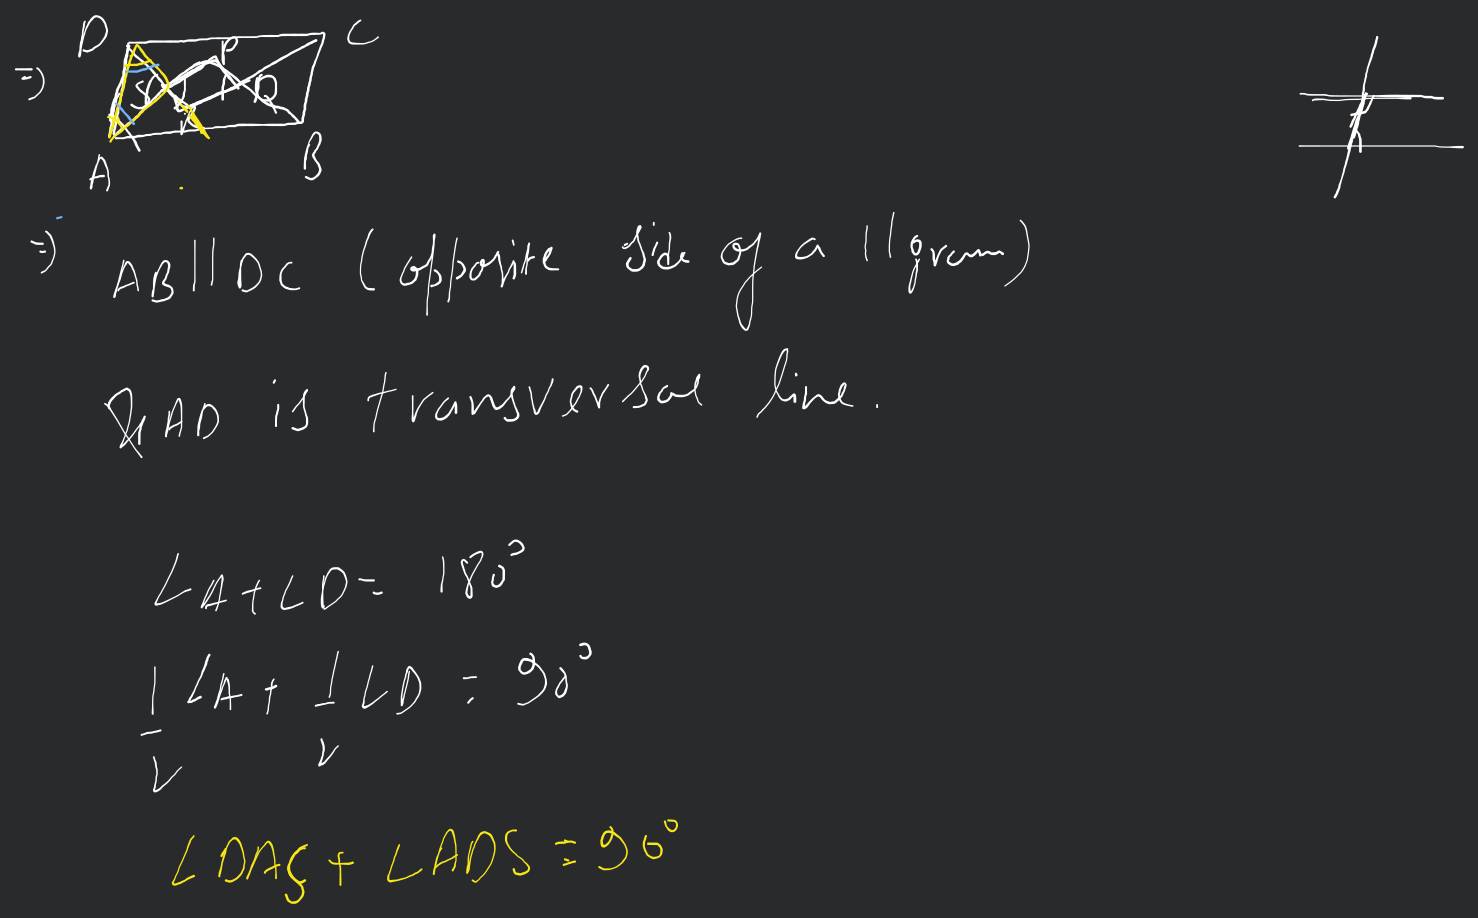 D
C
P
=)
S
Q
R
A
B
=) AB||DC (opposite side of a ||gram)
& AD is transversal line.
∠A+∠D= 180°
1/2 ∠A+ 1/2 ∠D = 90°
∠DAS + ∠ADS = 90°